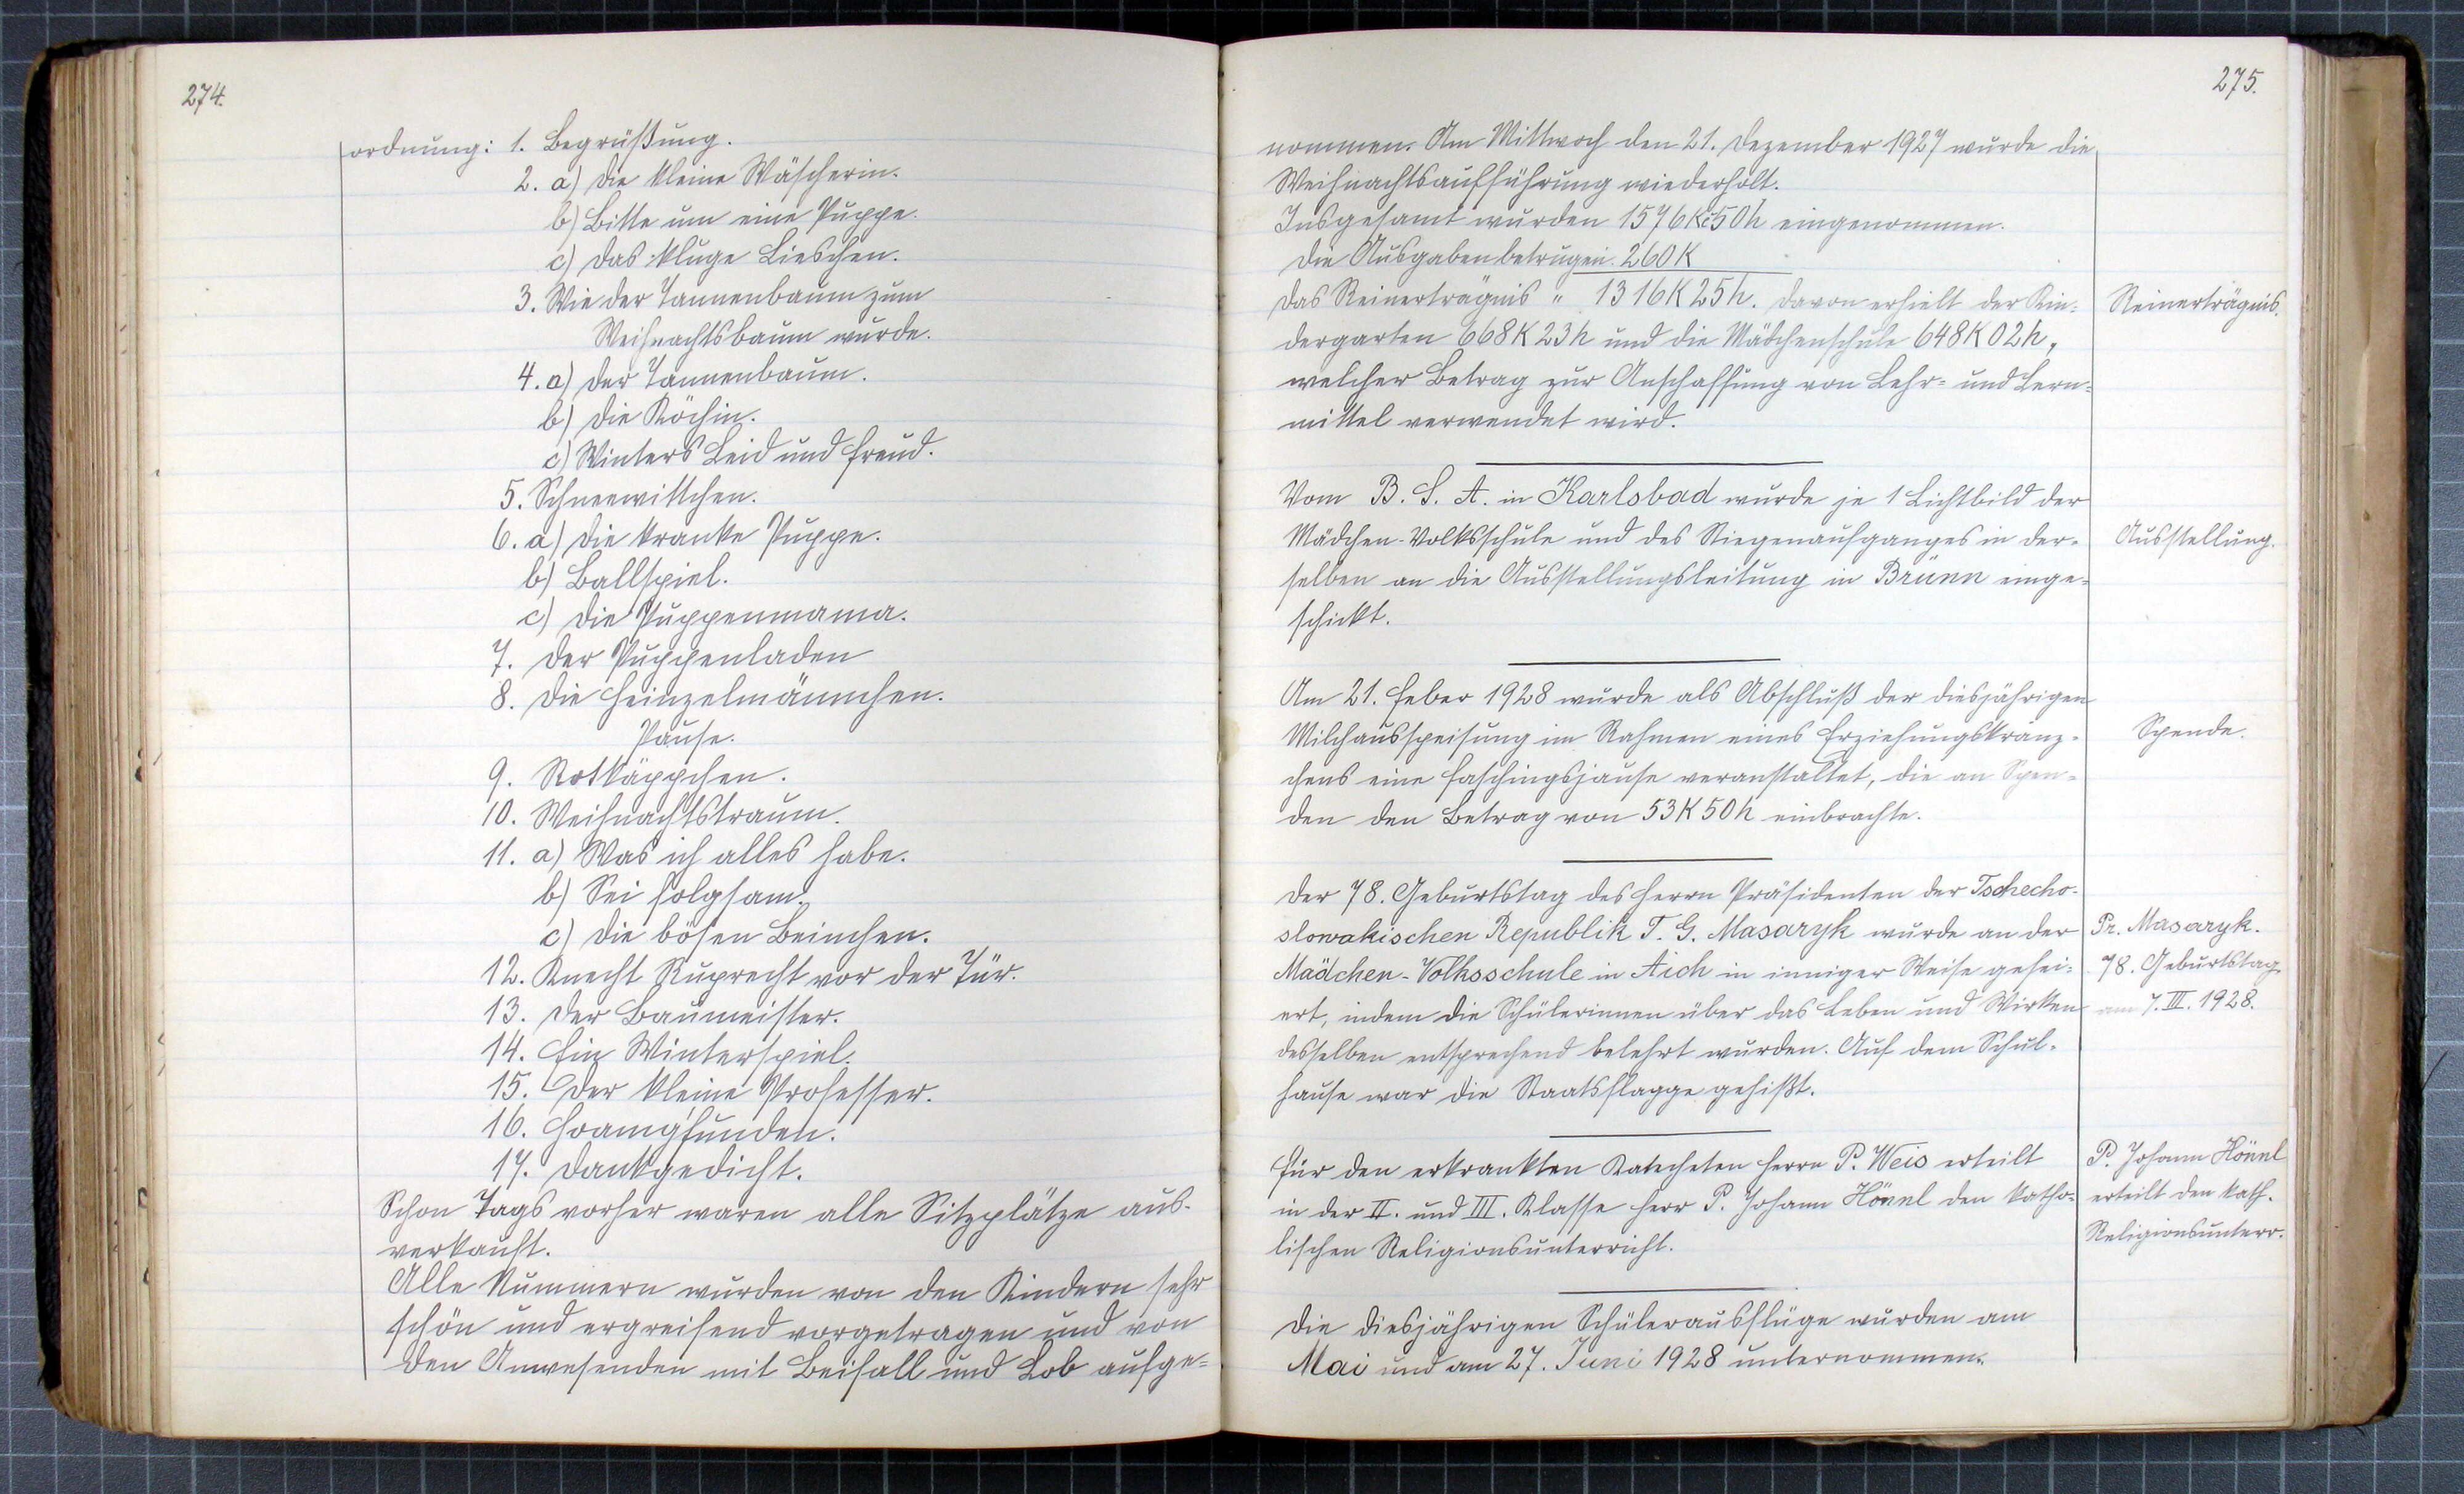 274.
ordnung: 1. Begrüßung.
2. a) Die kleine Wäscherin.
b) Bitte um eine Puppe.
c) Das kluge Lieschen.
3. Wie der Tannenbaum zum
Weihnachtsbaum wurde.
4. a) Der Tannenbaum.
b) Die Köchin.
c) Winters Leid und Freud.
5. Schneewittchen.
6. a) Die kranke Puppe.
b) Ballspiel.
c) Die Puppenmama.
7. Der Puppenladen
8. Die Heinzelmännchen.
Pause.
9. Rotkäppchen.
10. Weihnachtstraum.
11. a) Was ich alles habe.
b) Sei folgsam.
c) Die bösen Beinchen.
12. Knecht Ruprecht vor der Tür.
13. Der Baumeister.
14. Ein Winterspiel.
15. Der kleine Professer.
16. Hoamgfunden.
17. Dankgedicht.
Schon Tags vorher waren alle Sitzplätze aus-
verkauft.
Alle Nummern wurden von den Kindern sehr
schön und ergreifend vorgetragen und von
den Anwesenden mit Beifall und Lob aufge-
275.
nommen. Am Mittwoch den 21. Dezember 1927 wurde die
Weihnachtsaufführung wiederholt.
Insgesamt wurden 1576Kč50h eingenommen.
Die Ausgaben betrugen 260K
Das Reinerträgnis " 1316K25h. Davon erhielt der Kin-
dergarten 668K23h und die Mädchenschule 648K02h,
welcher Betrag zur Anschaffung von Lehr- und Lern-
mittel verwendet wird.
Reinerträgnis.
Vom B. S. A. in Karlsbad wurde je 1 Lichtbild der
Mädchen-Volksschule und des Stiegenaufganges in der-
selben an die Ausstellungsleitung in Brünn einge-
schickt.
Ausstellung.
Am 21. Feber 1928 wurde als Abschluß der diesjährigen
Milchausspeisung im Rahmen eines Erziehungskränz-
chens eine Faschingsjause veranstaltet, die an Spen-
den den Betrag von 53K50h einbrachte.
Spende.
Der 78. Geburtstag des Herrn Präsidenten der Tschecho-
slowakischen Republik T. G. Masaryk wurde an der
Mädchen-Volksschule in Aich in inniger Weise gefei-
ert, indem die Schülerinnen über das Leben und Wirken
desselben entsprechend belehrt wurden. Auf dem Schul-
hause war die Staatsflagge gehißt.
Pr. Masaryk.
78. Geburtstag
am 7. III. 1928.
Für den erkrankten Katecheten Herrn P. Weis erteilt
in der II. und III. Klasse Herr P. Johann Hönnl den katho-
lischen Religionsunterricht.
P. Johann Hönnl
erteilt den kath.
Religionsunterr.
Die diesjährigen Schülerausflüge wurden am
Mai und am 27. Juni 1928 unternommen.